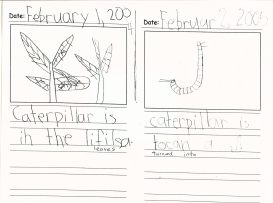 Date: February 1, 200
4
Caterpillar is
in the lifilsa.
leaves
Date: Februur 2, 2004
caterpillar is
tocan a J
turned into